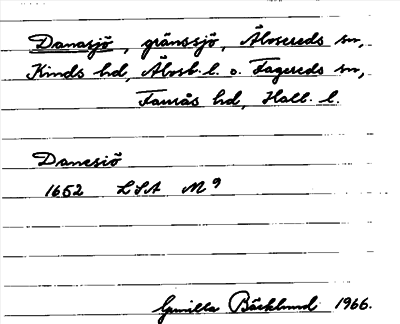 Danasjö, gränssjö, Älvsereds sn,
Kinds hd, Älvsb. l. o. Fagereds sn,
Faurås hd, Hall. l.
Danesiö
1652 LSA M9
Gunilla Bäcklund 1966.